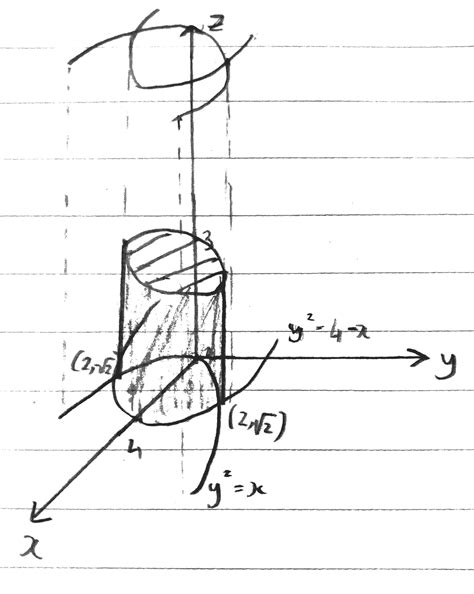 z
3
y² = 4-x
y
(2,√2)
(2,√2)
4
y² = x
x